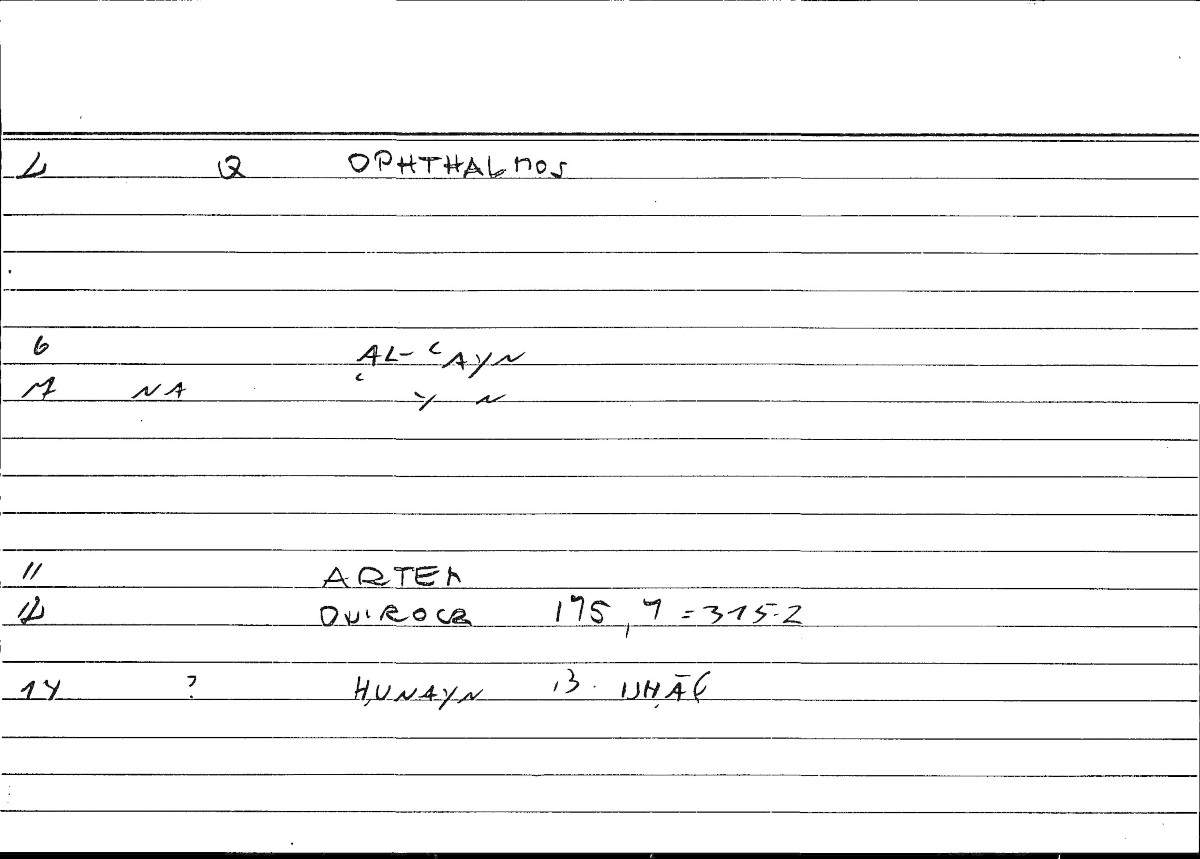 2 Q OPHTHALMOS
6 AL-ʿAYN
7 NA ʿ Y N
11 ARTEM
12 ONIROCR 175,7 = 315.2
14 ? ḤUNAYN B. ISḤĀQ